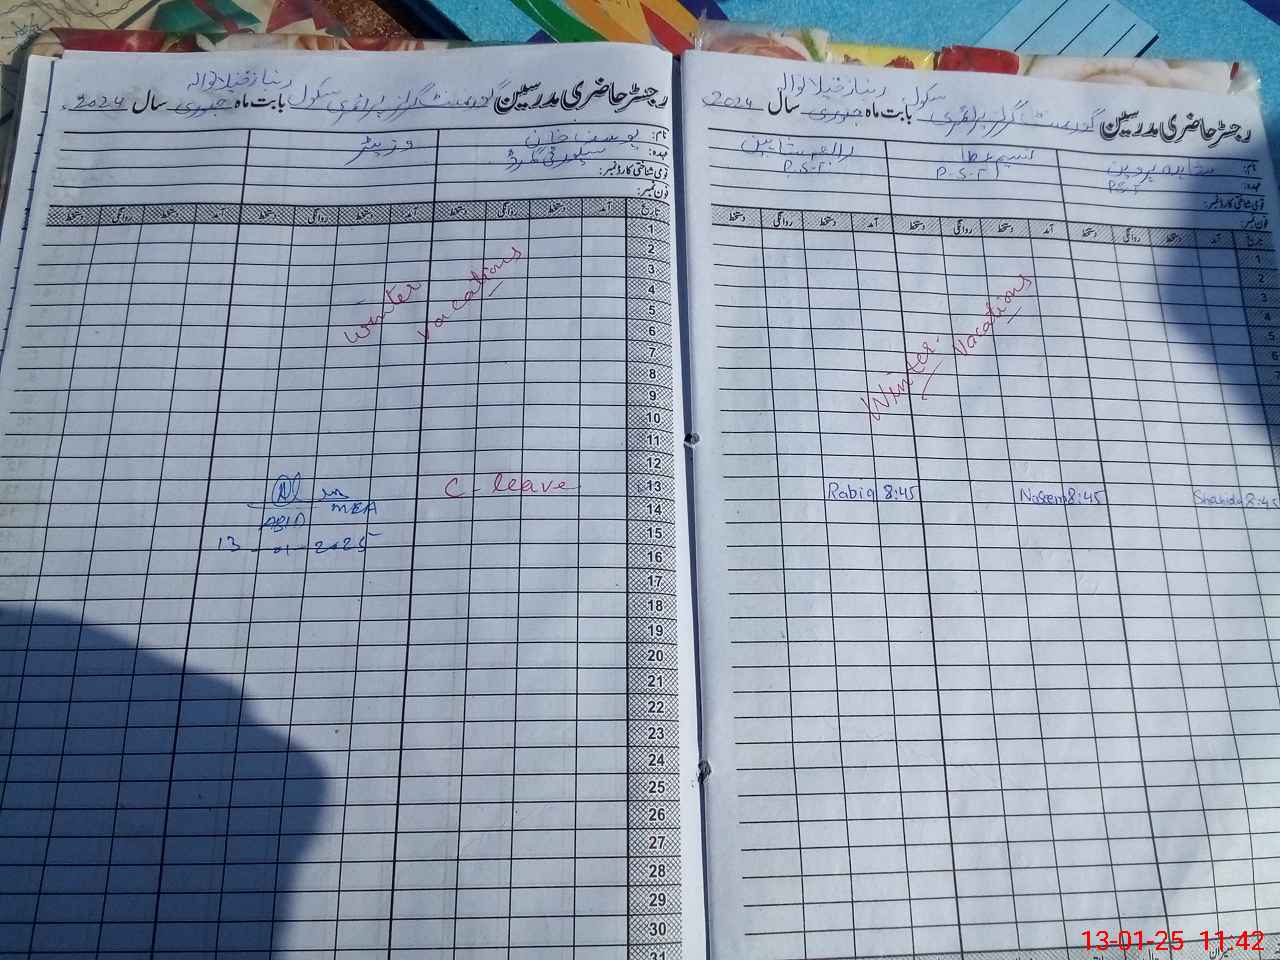 رجسٹر حاضری مدرسین گورنمنٹ گرلز پرائمری سکول بابت ماہ جنوری سال 2024
نام: یوسف خان وزیٹر
عہدہ: سیکورٹی گارڈ
قومی شناختی کارڈ نمبر:
فون نمبر:
تاریخ آمد دستخط روانگی دستخط آمد دستخط روانگی دستخط آمد دستخط روانگی دستخط
1
2
3
4
5
6
7
8
9
10
11
12
13
14
15
16
17
18
19
20
21
22
23
24
25
26
27
28
29
30
31
Winter Vacations
C - leave
in
MEA
ABID
13 - 01 - 2025
رجسٹر حاضری مدرسین گورنمنٹ گرلز پرائمری سکول بابت ماہ جنوری سال 2024
نام: شاہدہ پروین نسیم عطا رابعہ شاہین
عہدہ: PST P.S.T P.S.T
قومی شناختی کارڈ نمبر:
فون نمبر:
تاریخ آمد دستخط روانگی دستخط آمد دستخط روانگی دستخط آمد دستخط روانگی دستخط
1
2
3
4
5
6
Winter Vacations
Rabia 8:45 Naseem 8:45 Shahida 8:45
میزان
13-01-25 11:42